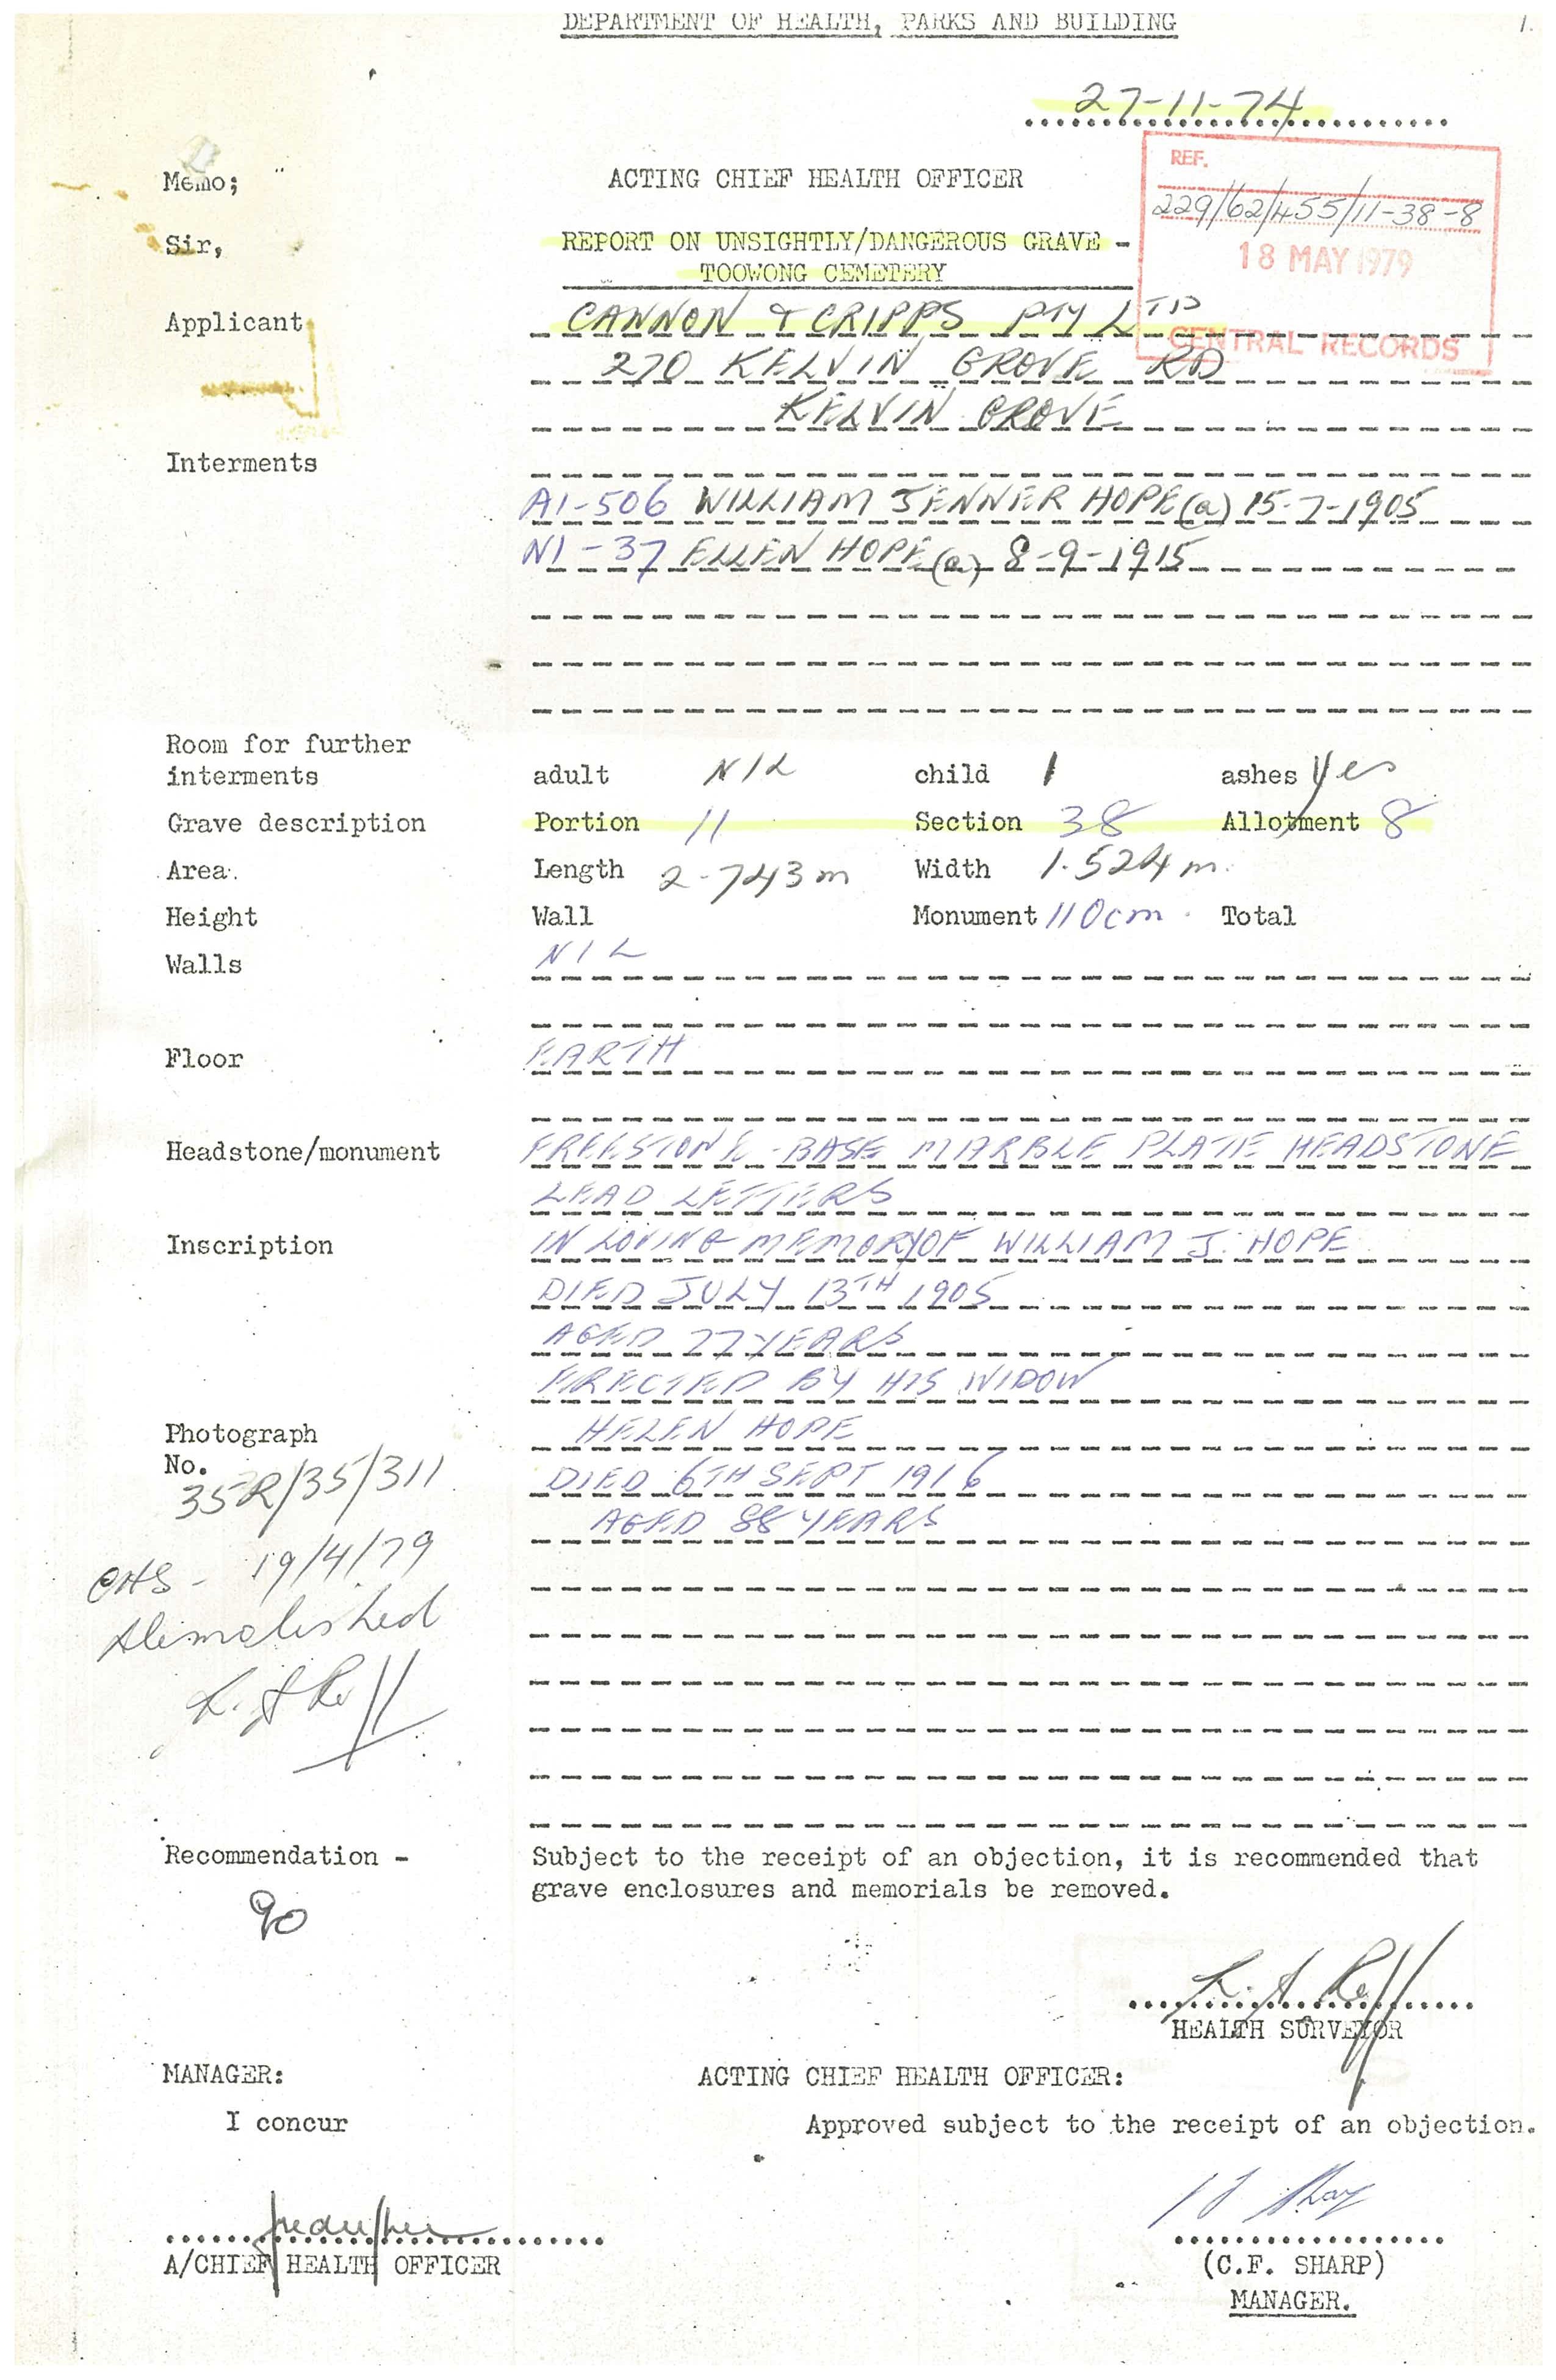 DEPARTMENT OF HEALTH, PARKS AND BUILDING
1.
27-11-74
Memo;
ACTING CHIEF HEALTH OFFICER
REF.
229/62/455/11-38-8
18 MAY 1979
CENTRAL RECORDS
Sir,
REPORT ON UNSIGHTLY/DANGEROUS GRAVE -
TOOWONG CEMETERY
Applicant
CANNON & CRIPPS PTY LTD
270 KELVIN GROVE RD
KELVIN GROVE
Interments
A1-506 WILLIAM JENNER HOPE (a) 15-7-1905
N1-37 ELLEN HOPE (a) 8-9-1915
Room for further
interments adult NIL child 1 ashes Yes
Grave description Portion 11 Section 38 Allotment 8
Area. Length 2.743m Width 1.524m.
Height Wall Monument 110cm. Total
Walls NIL
Floor EARTH
Headstone/monument FREESTONE-BASE MARBLE PLATE HEADSTONE
LEAD LETTERS
Inscription IN LOVING MEMORY OF WILLIAM J. HOPE
DIED JULY 13TH 1905
AGED 77 YEARS
ERECTED BY HIS WIDOW
Photograph HELEN HOPE
No. 35R/35/311 DIED 6TH SEPT 1916
AGED 88 YEARS
19/4/79
demolished
Recommendation - Subject to the receipt of an objection, it is recommended that
grave enclosures and memorials be removed.
90
HEALTH SURVEYOR
MANAGER: ACTING CHIEF HEALTH OFFICER:
I concur Approved subject to the receipt of an objection.
A/CHIEF HEALTH OFFICER (C.F. SHARP)
MANAGER.